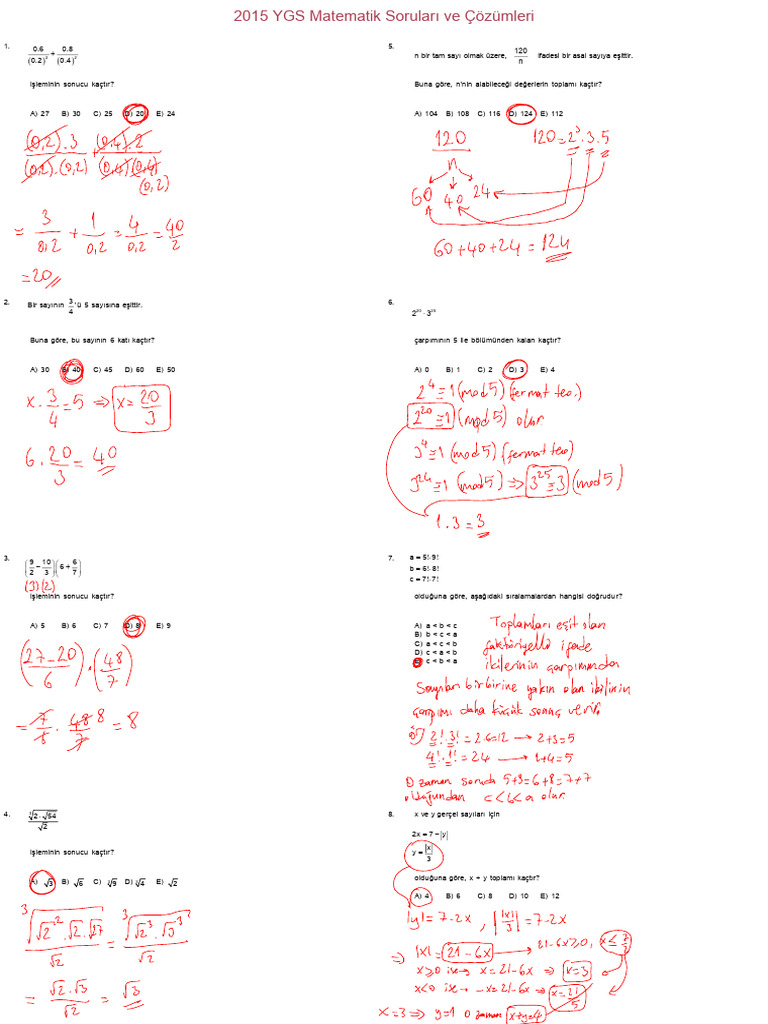 2015 YGS Matematik Soruları ve Çözümleri
1.
0.6/(0.2)² + 0.8/(0.4)²
işleminin sonucu kaçtır?
A) 27 B) 30 C) 25 D) 20 E) 24
(0,2).3/(0,2).(0,2) + (0,4).2/(0,4)(0,4)
(0,2)
= 3/0,2 + 1/0,2 = 4/0,2 = 40/2
= 20//
2.
Bir sayının 3/4'ü 5 sayısına eşittir.
Buna göre, bu sayının 6 katı kaçtır?
A) 30 B) 40 C) 45 D) 60 E) 50
x . 3/4 = 5 ⇒ x = 20/3
6 . 20/3 = 40
3.
(9/2 − 10/3)(6 + 6/7)
(3) (2)
işleminin sonucu kaçtır?
A) 5 B) 6 C) 7 D) 8 E) 9
(27-20/6) . (48/7)
= 7/6 . 48/7 8 = 8
4.
işleminin sonucu kaçtır?
A) √3 B) √6 C) ∛9 D) ∛4 E) √2
= √2.√3/√2 = √3
5.
n bir tam sayı olmak üzere, 120/n ifadesi bir asal sayıya eşittir.
Buna göre, n'nin alabileceği değerlerin toplamı kaçtır?
A) 104 B) 108 C) 116 D) 124 E) 112
120/n 120 = 2³.3.5
60 40 24
60+40+24 = 124
6.
çarpımının 5 ile bölümünden kalan kaçtır?
A) 0 B) 1 C) 2 D) 3 E) 4
2⁴ ≡ 1 (mod 5) (fermat teo.)
2²⁰ ≡ 1 (mod 5) olur
3⁴ ≡ 1 (mod 5) (fermat teo)
3²⁴ ≡ 1 (mod 5) ⇒ 3²⁵ ≡ 3 (mod 5)
1 . 3 = 3
7.
a = 5!·9!
b = 6!·8!
c = 7!·7!
olduğuna göre, aşağıdaki sıralamalardan hangisi doğrudur?
A) a < b < c
B) b < c < a
C) a < c < b
D) c < a < b
c < b < a
Toplamları eşit olan
faktöriyelli ifade
ikilerinin çarpımından
Sayıları birbirine yakın olan ikilinin
çarpımı daha küçük sonuç verir.
2! . 3! = 2.6=12 → 2+3=5
4! . 1! = 24 → 1+4=5
O zaman soruda 5+9=6+8=7+7
olduğundan c<b<a olur.
8.
x ve y gerçel sayıları için
2x = 7 − |y|
y = |x|/3
olduğuna göre, x + y toplamı kaçtır?
A) 4 B) 6 C) 8 D) 10 E) 12
|y| = 7-2x , ||x|/3| = 7-2x
⇒ |x| = 21-6x → 21-6x≥0, x≤ 7/2
x≥0 ise → x = 21-6x ⇒ x=3
x<0 ise → -x = 21-6x ⇒ x = 21/5
x=3 ⇒ y=1 O zaman x+y=4